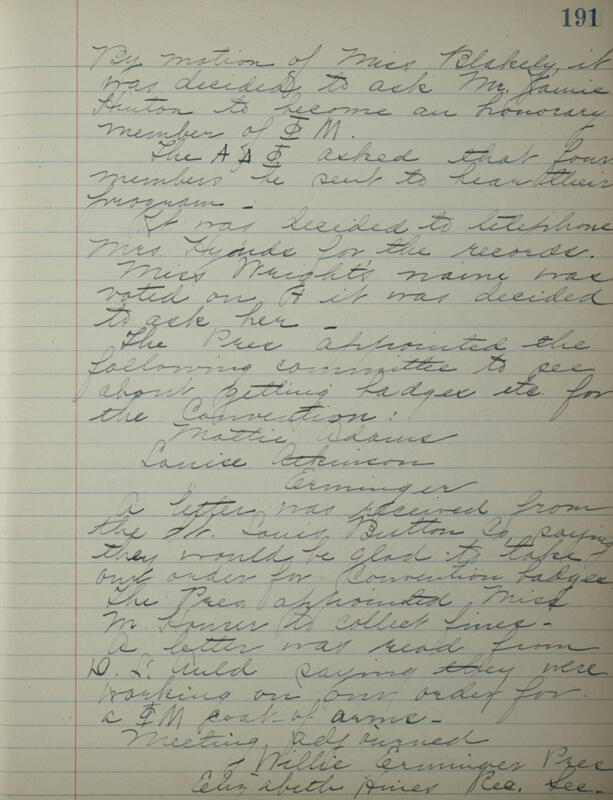 191
By motion of Miss Blakely it
was decided to ask Mr. Jamie
Hinton to become an honorary
member of Φ M.
The A Δ Φ asked that four
members be sent to hear their
program -
It was decided to telephone
Mrs. Hynds for the records.
Miss Wright's name was
voted on & it was decided
to ask her -
The Pres appointed the
following committee to see
about getting badges etc for
the Convention:
Mattie Adams
Louise Atkinson
" Erminger
A letter was received from
the St. Louis Button Co. saying
they would be glad to take
our order for Convention badges
The Pres. appointed Miss
M. Houser to collect fines -
A letter was read from
D. L. Auld saying they were
working on our order for
a Φ M coat-of arms -
Meeting adjourned
Willie Erminger Pres
Elizabeth Ames Rec. Sec -